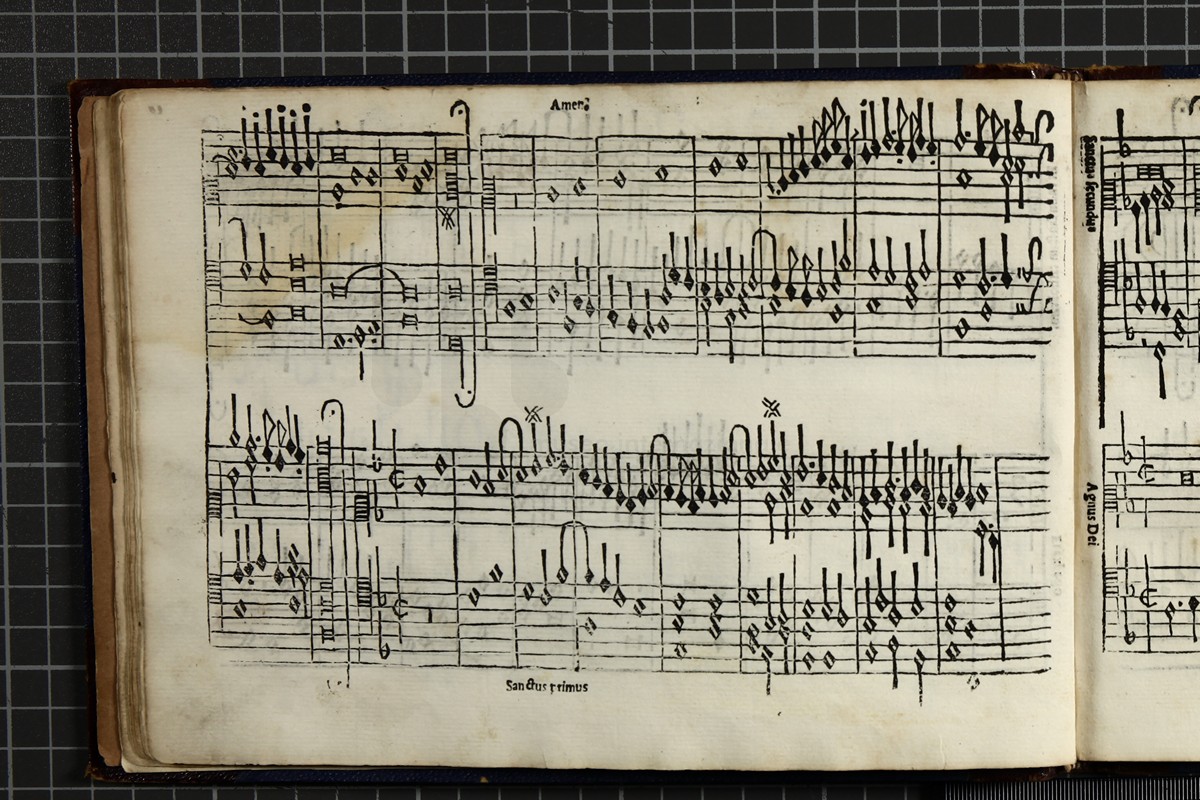 Amen
Sanctus primus
Sanctus secundus
Agnus Dei